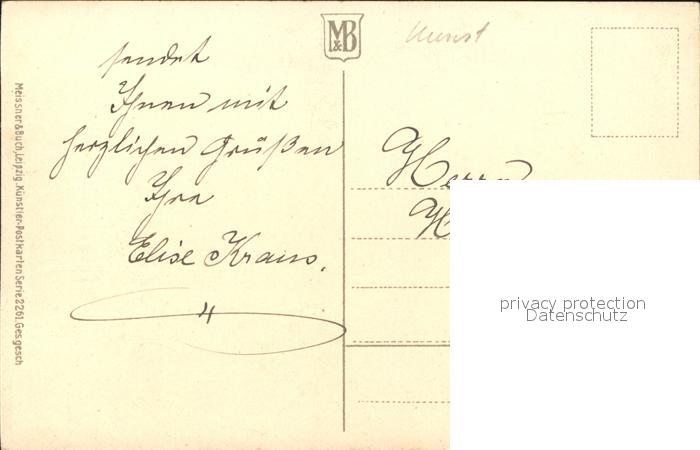 M&B
Kunst
sendet
Ihnen mit
herzlichen Grüßen
Ihre
Elise Kraus.
4
Herrn
H
privacy protection
Datenschutz
Meissner & Buch, Leipzig, Künstler-Postkarten Serie 2261. Ges. gesch